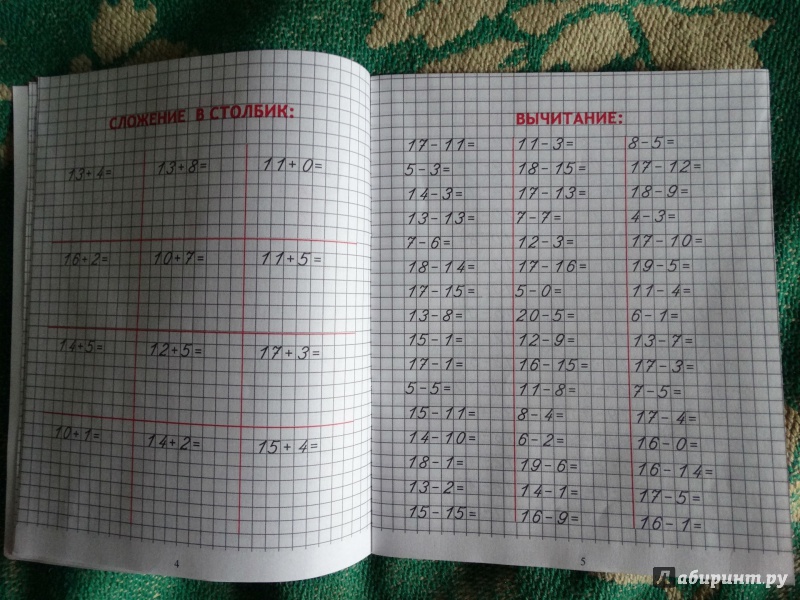 СЛОЖЕНИЕ В СТОЛБИК:
13+4= 13+8= 11+0=
16+2= 10+7= 11+5=
14+5= 12+5= 17+3=
10+1= 14+2= 15+4=
4
ВЫЧИТАНИЕ:
17-11= 11-3= 8-5=
5-3= 18-15= 17-12=
14-3= 17-13= 18-9=
13-13= 7-7= 4-3=
7-6= 12-3= 17-10=
18-14= 17-16= 19-5=
17-15= 5-0= 11-4=
13-8= 20-5= 6-1=
15-1= 12-9= 13-7=
17-1= 16-15= 17-3=
5-5= 11-8= 7-5=
15-11= 8-4= 17-4=
14-10= 6-2= 16-0=
18-1= 19-6= 16-14=
13-2= 14-1= 17-5=
15-15= 16-9= 16-1=
5
Лабиринт.ру